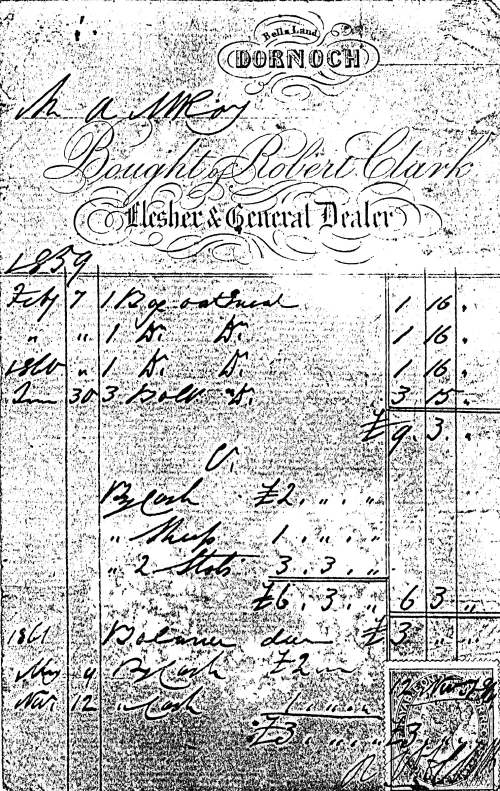 Bell & Land.
DORNOCH
Mr A McKay
Bought of Robert Clark
Flesher & General Dealer
1859
Feby 7 1 Bag oatmeal 1 16 "
" " 1 Do. Do. 1 16 "
1860 " 1 Do. Do. 1 16 "
30 3 Bolls Do. 3 15 "
£9. 3. "
Cr.
By Cash £2. " . "
" Sheep 1. " . "
" 2 Stots 3. 3. "
£6. 3. " 6 3 "
1861 Balance due £3 " "
May 9 By Cash £2 " "
Nov 12 " Cash 1 " "
£3 " " £3 " "
12 Nov